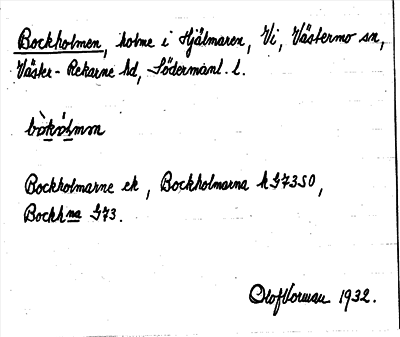 Bockholmen, holme i Hjälmaren, Vi, Västermo sn,
Väster-Rekarne hd, Södermanl. l.
bòkòlmən
Bockholmarne ek, Bockholmarna k G73SO,
Bockhna G73.
Olof Vorman 1932.